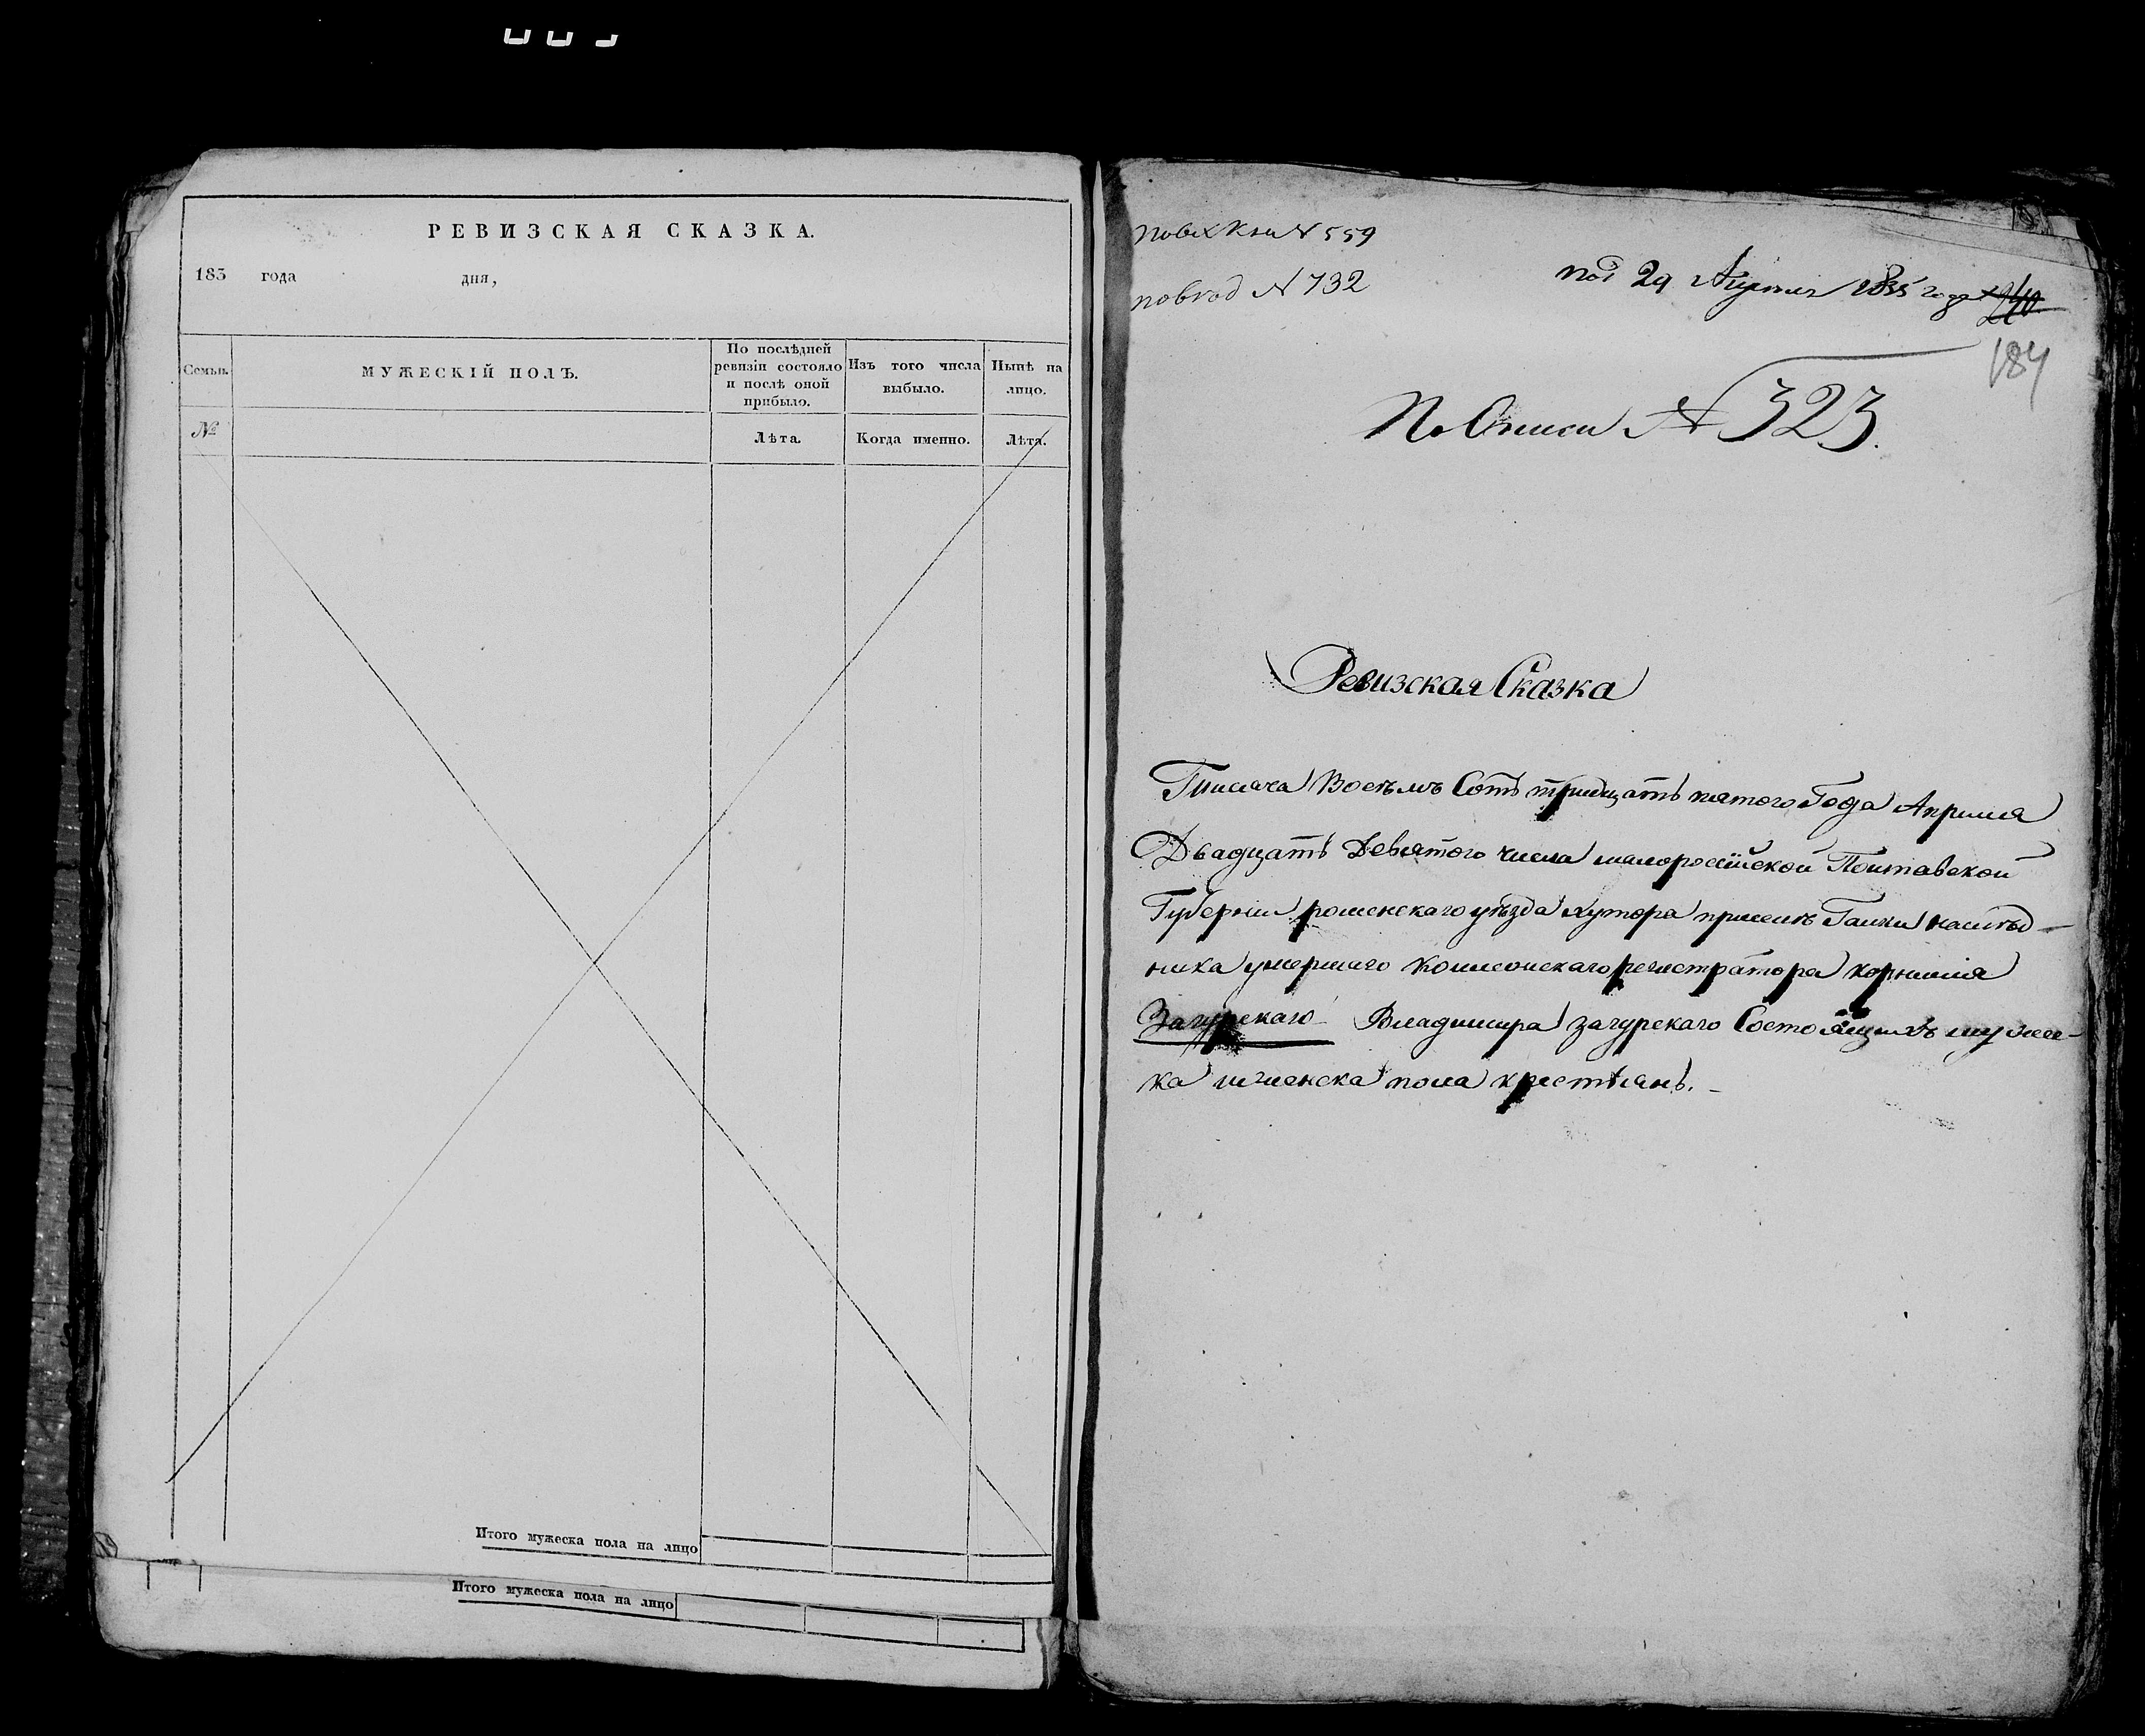 РЕВИЗСКАЯ СКАЗКА.
183 года дня,
Семьи.
МУЖЕСКІЙ ПОЛЪ.
По послѣдней
ревизіи состояло
и послѣ оной
прибыло.
Изъ того числа
выбыло.
Нынѣ на
лицо.
№
Лѣта.
Когда именно.
Лѣта.
Итого мужеска пола на лицо
Итого мужеска пола на лицо
N 559
N 732
29 Апреля 1835 года
184
По Описи № 323.
Ревизская Сказка
Тисяча Восемъ Сотъ тридцать пятого Года Априля
Двадцать Девятого числа малороссійской Полтавской
Губерніи роменскаго уѣзда хутора при Галки наслѣд-
ника умершаго Коллежскаго регистратора корнилія
Загурскаго Владимира загурскаго Состоящихъ мужес-
ка и женска пола крестьянъ.